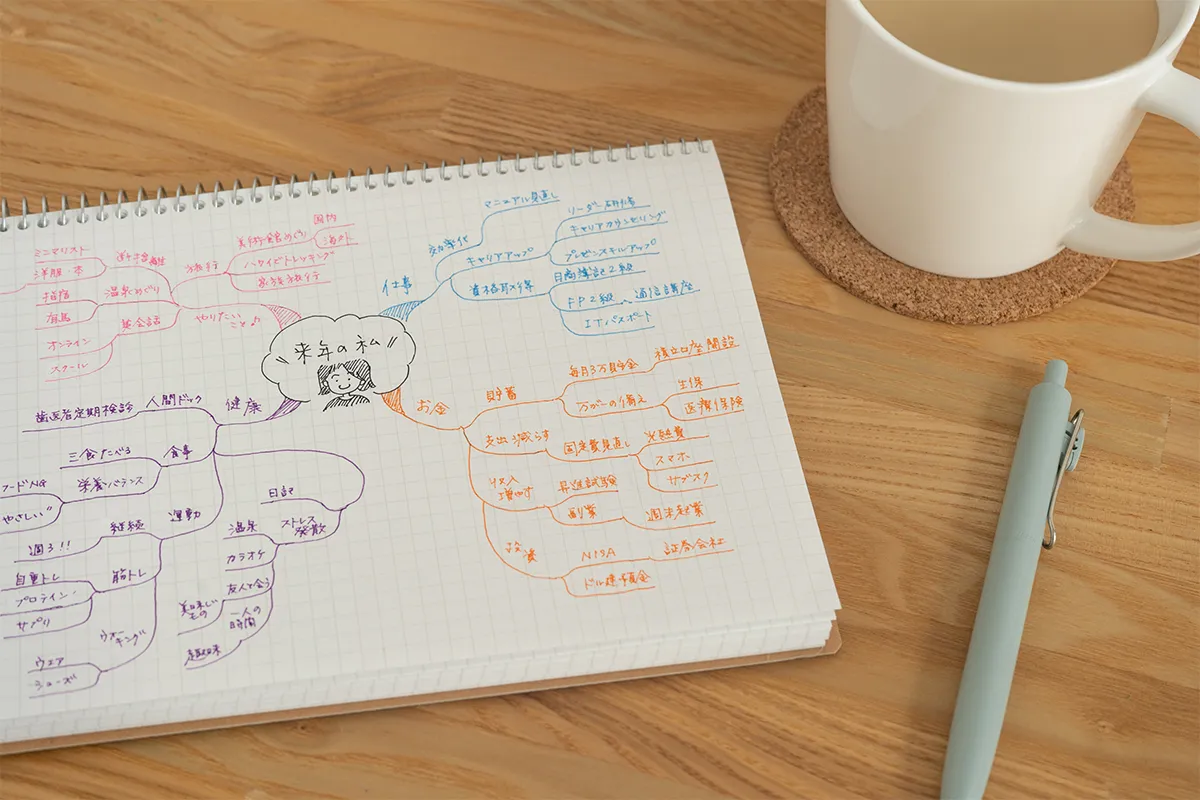 来年の私
仕事
効率化
マニュアル見直し
キャリアアップ
リーダー研修
キャリアカウンセリング
プレゼンスキルアップ
資格取得
日商簿記2級
FP2級
通信講座
ITパスポート
お金
貯蓄
毎月3万貯金
積立口座開設
万が一の備え
生保
医療保険
支出減らす
固定費見直し
光熱費
スマホ
サブスク
収入
増やす
昇進試験
副業
週末起業
投資
NISA
証券会社
ドル建預金
健康
人間ドック
歯医者定期検診
食事
三食たべる
栄養バランス
フードNG
やさしい
運動
継続
週3!!
筋トレ
自重トレ
プロテイン
サプリ
ウォーキング
ウェア
シューズ
ストレス
発散
日記
温泉
カラオケ
友人と会う
美味しい
もの
一人の
時間
趣味
やりたい
こと♪
旅行
美術館めぐり
国内
海外
ハワイでトレッキング
家族旅行
温泉めぐり
指宿
有馬
英会話
オンライン
スクール
ミニマリスト
洋服・本